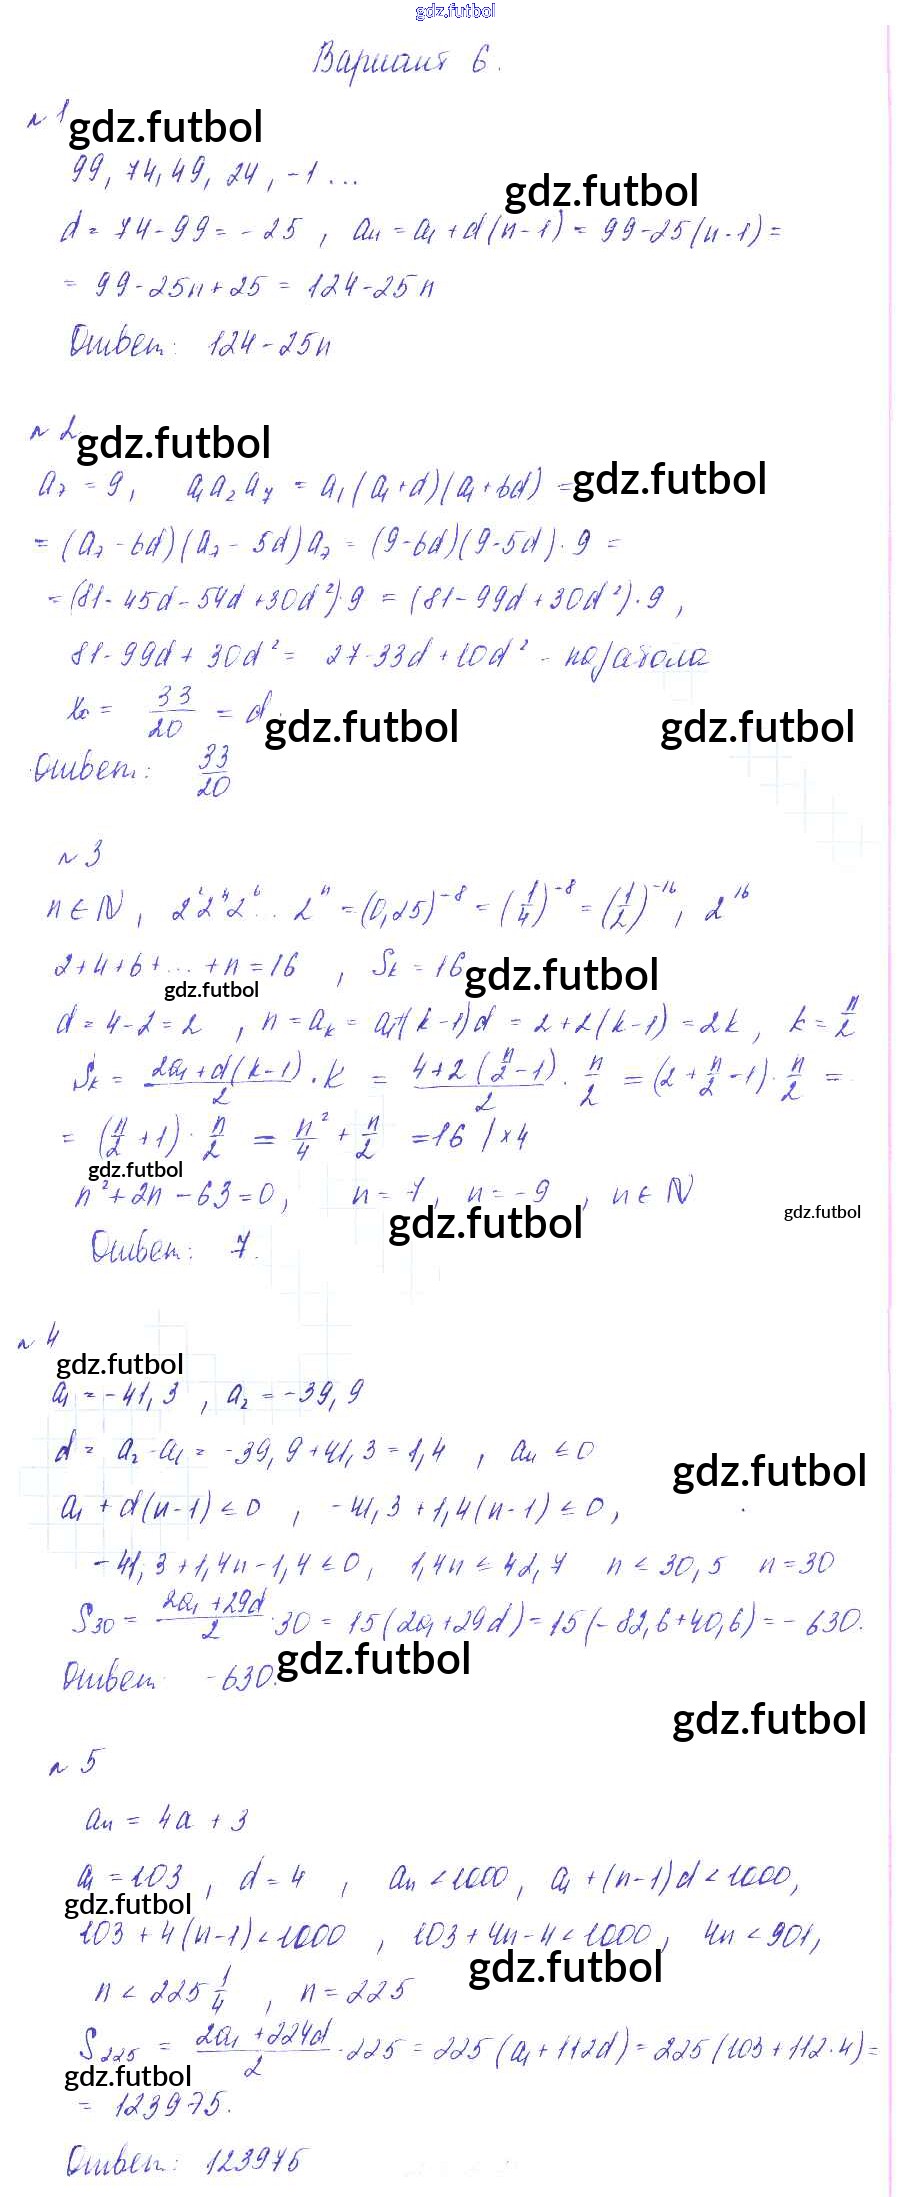 gdz.futbol
Вариант 6.
№1 gdz.futbol
99, 74, 49, 24, -1 ...
gdz.futbol
d = 74 - 99 = - 25 , an = a1 + d(n-1) = 99 - 25(n-1) =
= 99 - 25n + 25 = 124 - 25n
Ответ: 124 - 25n
№2 gdz.futbol
a7 = 9, a1 a2 a7 = a1(a1+d)(a1+6d) = gdz.futbol
= (a7 - 6d)(a7 - 5d)a7 = (9-6d)(9-5d)·9 =
= (81 - 45d - 54d + 30d²)·9 = (81 - 99d + 30d²)·9 ,
81 - 99d + 30d² = 27 - 33d + 10d² - парабола
x0 = 33/20 = d. gdz.futbol gdz.futbol
Ответ: 33/20
№3
n ∈ N , 2² 2⁴ 2⁶ ... 2ⁿ = (0,25)⁻⁸ = (1/4)⁻⁸ = (1/2)⁻¹⁶, 2¹⁶
2+4+6+...+n = 16 , Sk = 16 gdz.futbol
gdz.futbol
d = 4-2 = 2 , n = ak = a1+(k-1)d = 2+2(k-1) = 2k , k = n/2
Sk = (2a1+d(k-1))/2 · k = (4+2(n/2-1))/2 · n/2 = (2+n/2-1)·n/2 =
= (n/2+1)·n/2 = n²/4 + n/2 = 16 /×4
gdz.futbol
n²+2n-63=0, n = 7, n = -9 , n ∈ N
gdz.futbol gdz.futbol
Ответ: 7.
№4
gdz.futbol
a1 = -41,3 , a2 = -39,9
d = a2 - a1 = -39,9+41,3 = 1,4 , an ≤ 0
gdz.futbol
a1 + d(n-1) ≤ 0 , -41,3 + 1,4(n-1) ≤ 0,
-41,3+1,4n-1,4 ≤ 0, 1,4n ≤ 42,7 n ≤ 30,5 n=30
S30 = (2a1+29d)/2 · 30 = 15(2a1+29d) = 15(-82,6+40,6) = -630.
Ответ -630. gdz.futbol
gdz.futbol
№5
an = 4a + 3
a1 = 103 , d = 4 , an < 1000 , a1 + (n-1)d < 1000,
gdz.futbol
103 + 4(n-1) < 1000 , 103+4n-4 < 1000, 4n < 901,
gdz.futbol
n < 225 1/4 , n = 225
S225 = (2a1+224d)/2 · 225 = 225(a1+112d) = 225(103+112·4) =
gdz.futbol
= 123975.
Ответ: 123975